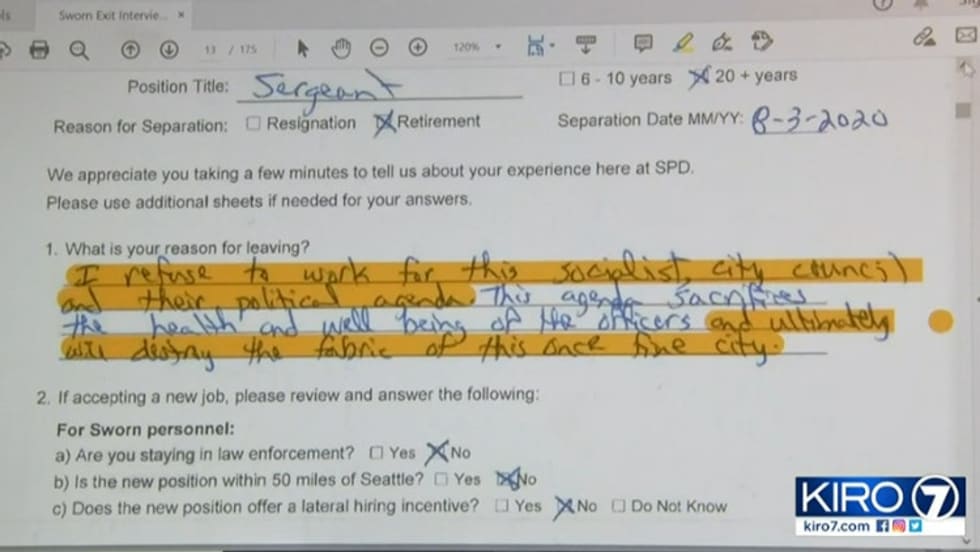 Sworn Exit Intervie... ×
13 / 175
120%
Position Title: Sergeant
6 - 10 years 20 + years
Reason for Separation: Resignation Retirement
Separation Date MM/YY: 8-3-2020
We appreciate you taking a few minutes to tell us about your experience here at SPD.
Please use additional sheets if needed for your answers.
1. What is your reason for leaving?
I refuse to work for this socialist, city council
and their political agenda. This agenda sacrifices
the health and well being of the officers and ultimately
will distroy the fabric of this once fine city.
2. If accepting a new job, please review and answer the following:
For Sworn personnel:
a) Are you staying in law enforcement? Yes No
b) Is the new position within 50 miles of Seattle? Yes No
c) Does the new position offer a lateral hiring incentive? Yes No Do Not Know
KIRO 7
kiro7.com